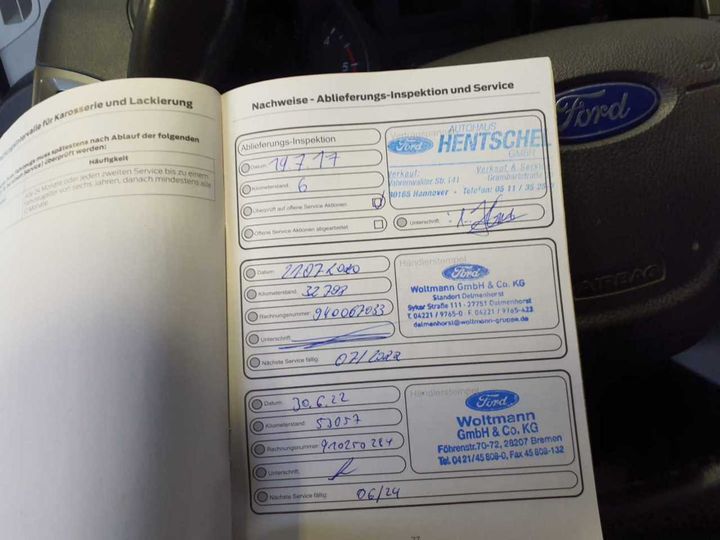 intervalle für Karosserie und Lackierung
spätestens nach Ablauf der folgenden
Service) überprüft werden:
Häufigkeit
Alle 24 Monate oder jeden zweiten Service bis zu einem
von sechs Jahren, danach mindestens alle
Monate.
Nachweise - Ablieferungs-Inspektion und Service
Ablieferungs-Inspektion
Datum: 19.7.17
Kilometerstand: 6
Überprüft auf offene Service Aktionen
Offene Service Aktionen abgearbeitet
Ford
AUTOHAUS
HENTSCHEL
GMBH
Verkauf:
Vahrenwalder Str. 141
30165 Hannover - Telefon: 05 11 / 35 20
Verkauf & Service
Unterschrift:
Datum: 21.07.2020
Kilometerstand: 32798
Rechnungsnummer: 940067033
Unterschrift:
Nächste Service fällig: 07/2022
Händlerstempel
Ford
Woltmann GmbH & Co. KG
Standort Delmenhorst
Syker Straße 111 - 27751 Delmenhorst
T. 04221 / 9765-0 - F. 04221 / 9765-423
delmenhorst@woltmann-gruppe.de
Datum: 30.6.22
Kilometerstand: 53057
Rechnungsnummer: 910250284
Unterschrift:
Nächste Service fällig: 06/24
Händlerstempel
Ford
Woltmann
GmbH & Co. KG
Föhrenstr. 70-72, 28207 Bremen
Tel. 04 21/45 808-0, Fax 45 808-132
Ford
AIRBAG